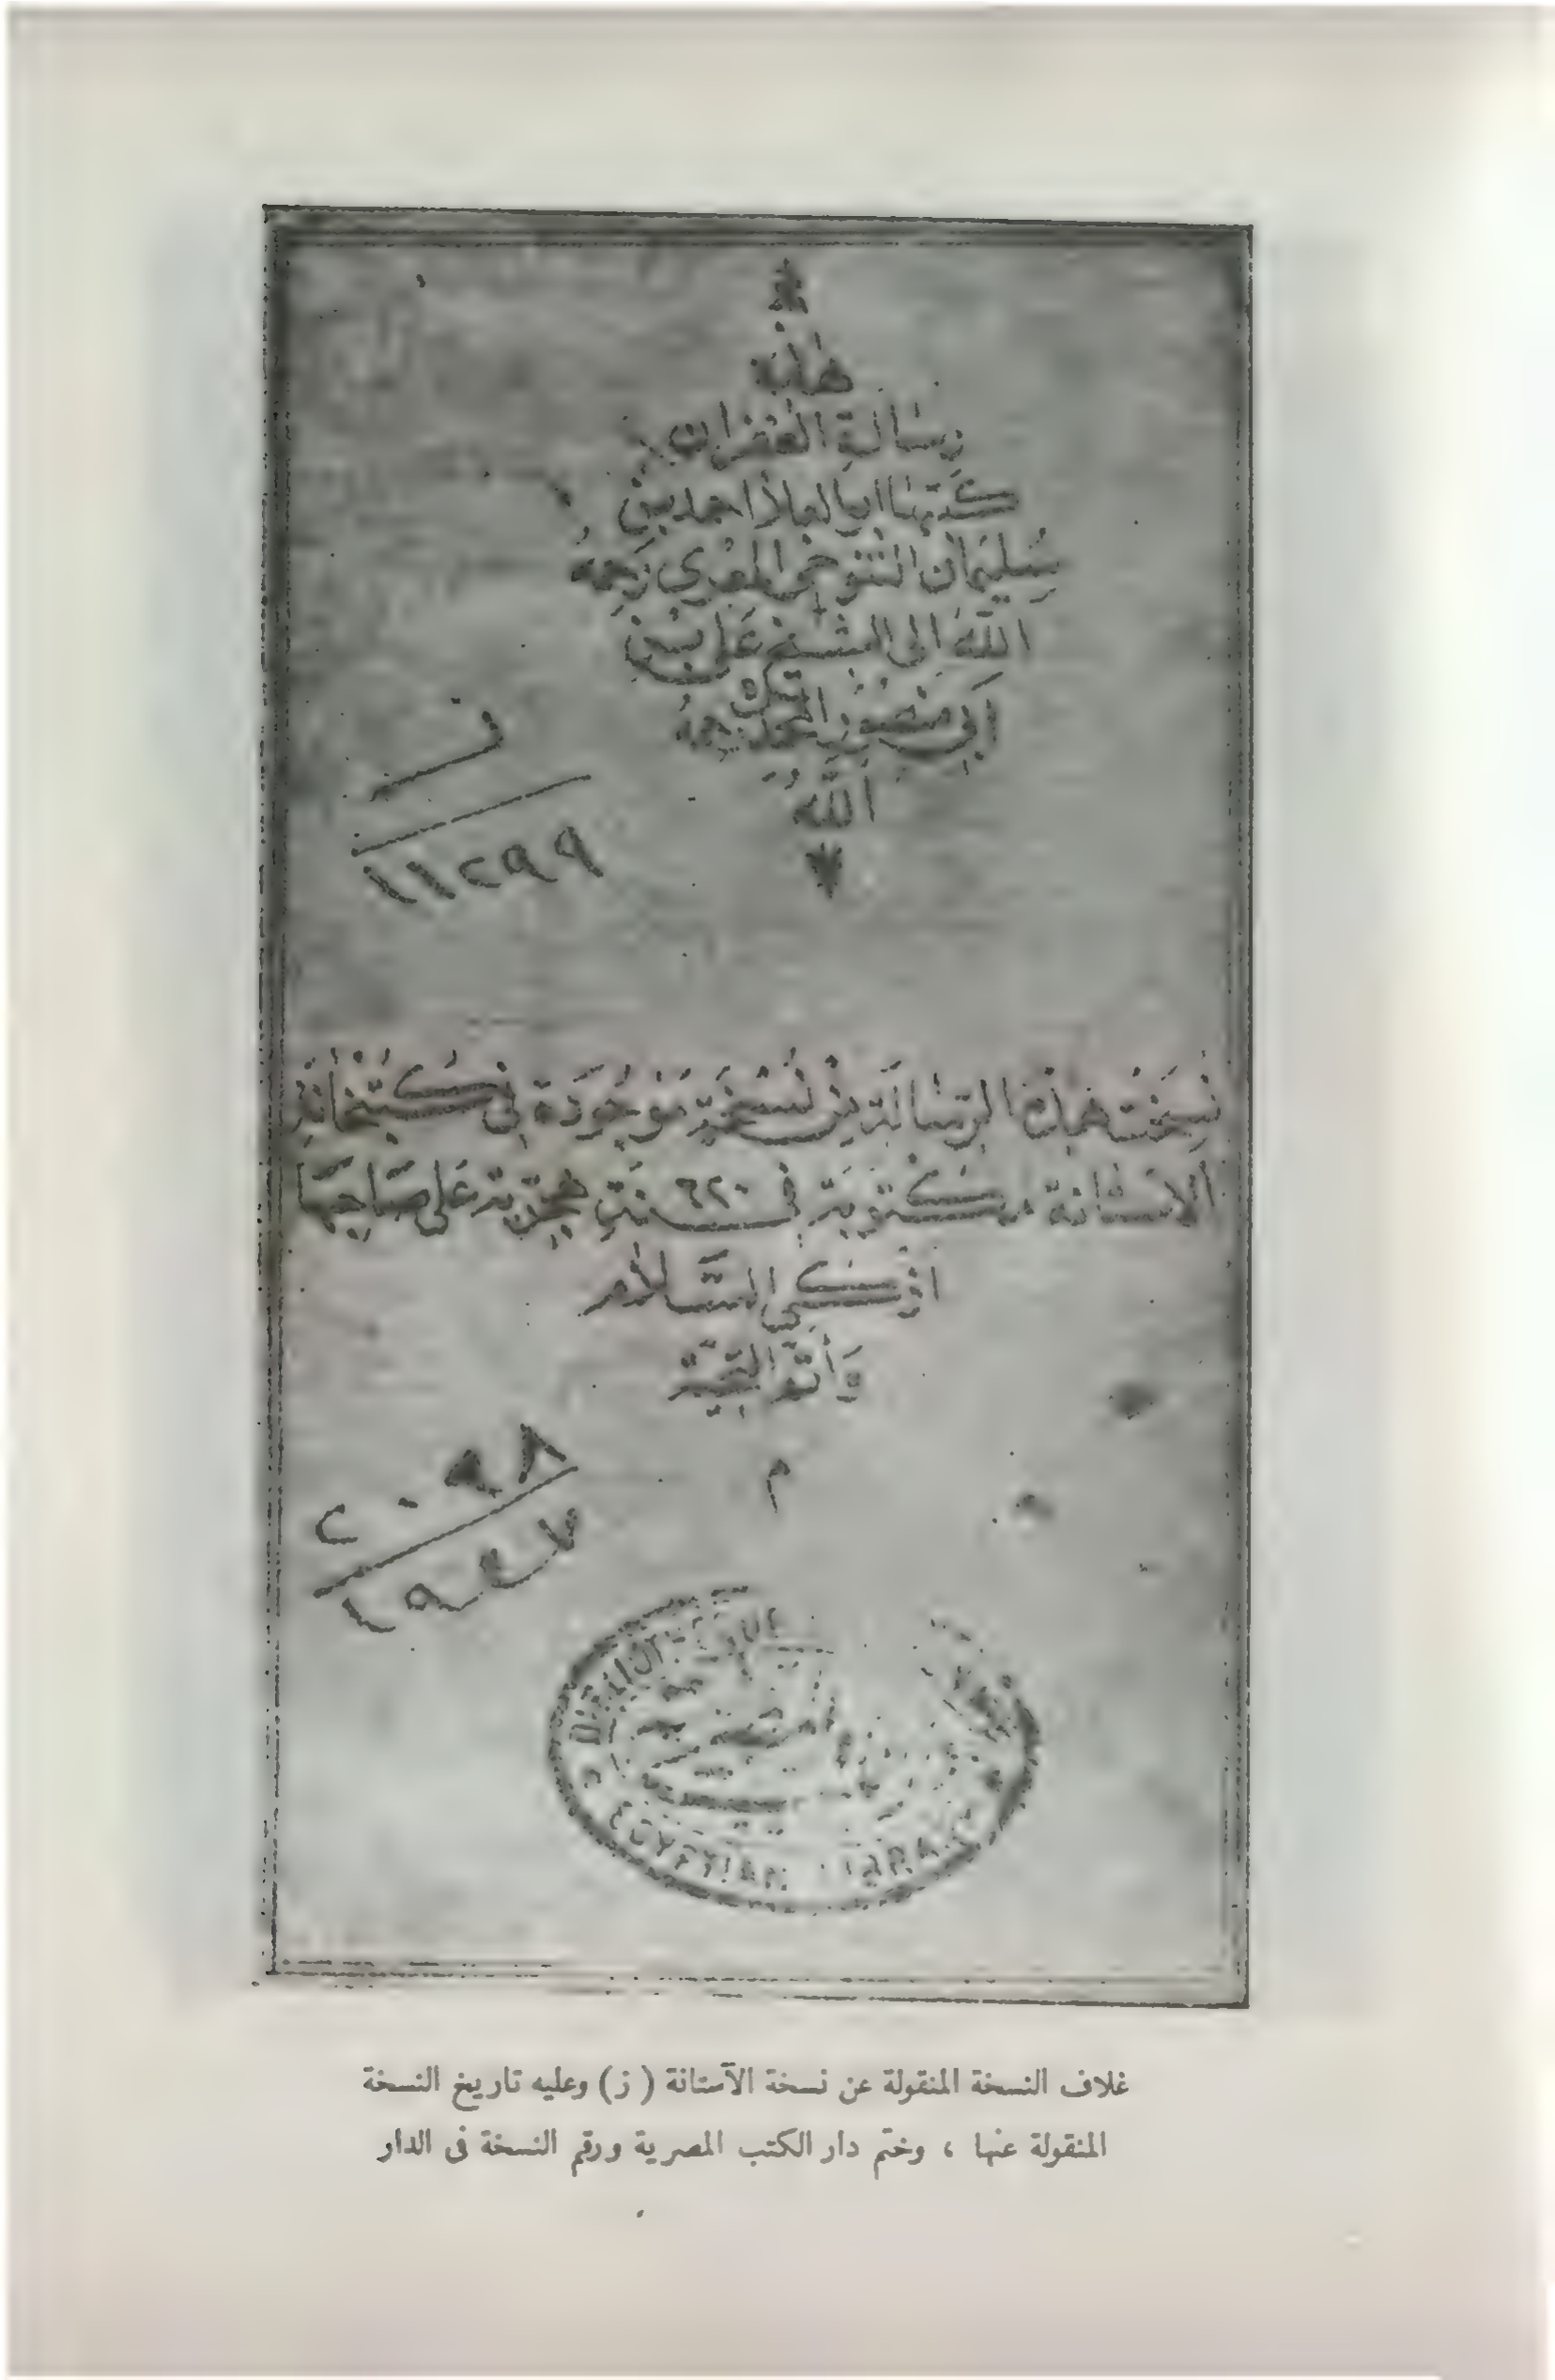 هٰذِهِ
رسالة الغفران
كَتَبَهَا ابوالعلاء احمد بن
سُلَيمَان التنوخي المعري رَحِمَهُ
اللّٰهُ الى الشيخ عَلى بن
اَبي مَنصُور رحمه
اَللّٰهُ
ف
١١٢٩٩
نُسِخَتْ هٰذِهِ الرّسَالَة مِنْ نُسْخَةٍ مَوْجُودَة فِى كُتُبْخَانَةِ
الاسْتَانَة مَكْتوبَة فِى سنَة ٦٢٠ هِجْرِيّة عَلى صَاحِبِهَا
ازكى السَّلام
وَأتمّ التَّحِيَّة
٢٠٩٨
م
١٩٤٧
EGYPTIAN
غلاف النسخة المنقولة عن نسخة الآستانة (ز) وعليه تاريخ النسخة
المنقولة عنها ، وختم دار الكتب المصرية ورقم النسخة فى الدار